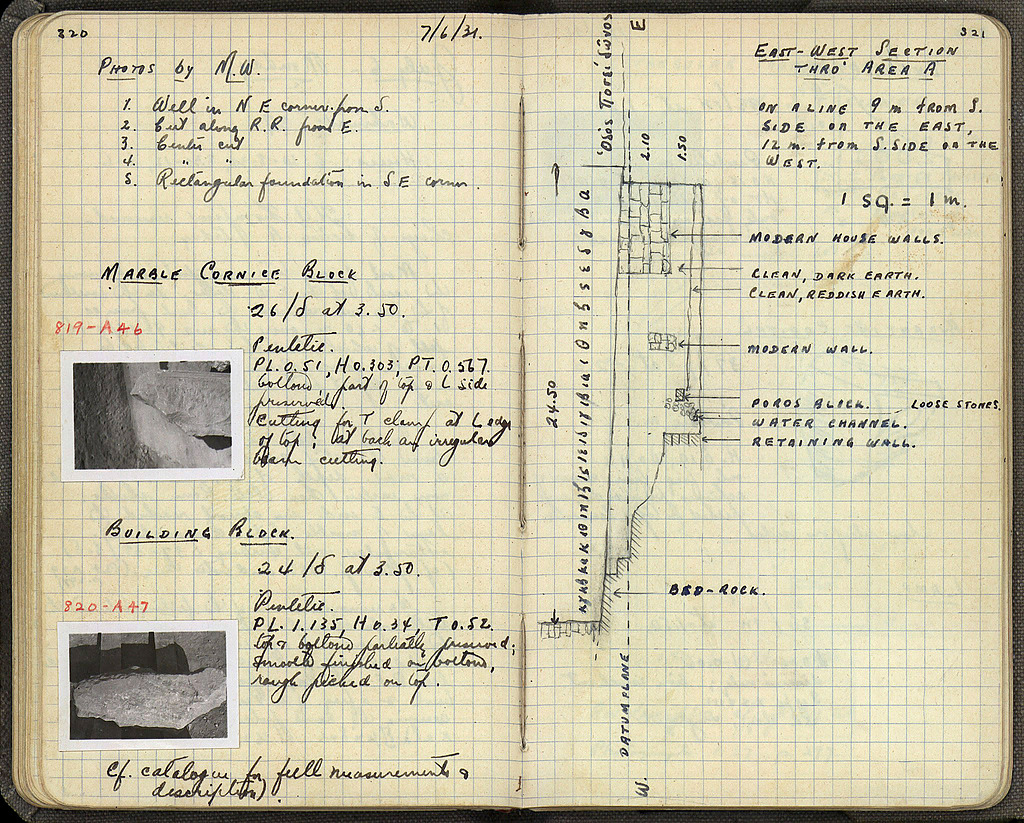 320
7/6/31.
Photos by M.W.
1. Well in N E corner from S.
2. Cut along R.R. from E.
3. Center cut
4. " "
5. Rectangular foundation in S E corner.
MARBLE CORNICE BLOCK
26/δ at 3.50.
819-A46
Pentelic.
PL. 0.51, H 0.303; PT. 0.567.
bottom, part of top & L side
preserved
Cutting for T clamp at L edge
of top; at back an irregular
beam cutting.
BUILDING BLOCK.
24/δ at 3.50.
820-A47
Pentelic.
PL. 1.135, H 0.34, T 0.52.
top & bottom partially preserved;
smooth finished on bottom,
rough picked on top.
Cf. catalogue for full measurements &
description)
321
EAST-WEST SECTION
THRO' AREA A
ON A LINE 9 m FROM S.
SIDE ON THE EAST,
12 m. FROM S. SIDE ON THE
WEST.
1 SQ. = 1 m.
E
Ὁδὸς Ποσειδῶνος
2.10
1.50
MODERN HOUSE WALLS.
CLEAN, DARK EARTH.
CLEAN, REDDISH EARTH.
MODERN WALL.
POROS BLOCK.
LOOSE STONES.
WATER CHANNEL.
RETAINING WALL.
24.50
BED-ROCK.
DATUM PLANE
W.